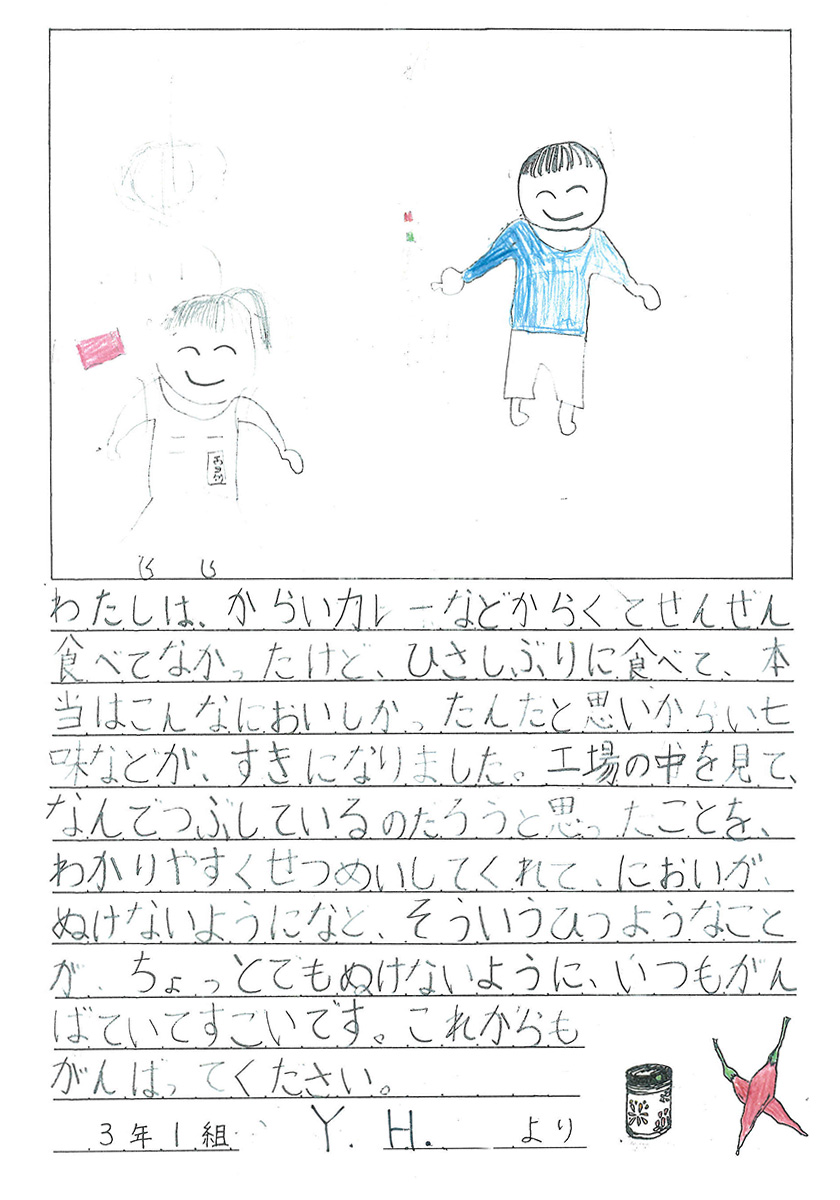 わたしは、からいカレーなどからくてせんぜん
食べてなかったけど、ひさしぶりに食べて、本
当はこんなにおいしかったんだと思いからい七
味などが、すきになりました。工場の中を見て、
なんでつぶしているのだろうと思ったことを、
わかりやすくせつめいしてくれて、においが、
ぬけないようになど、そういうひつようなこと
が、ちょっとでもぬけないように、いつもがん
ばていてすごいです。これからも
がんばってください。
3年1組 Y. H. より